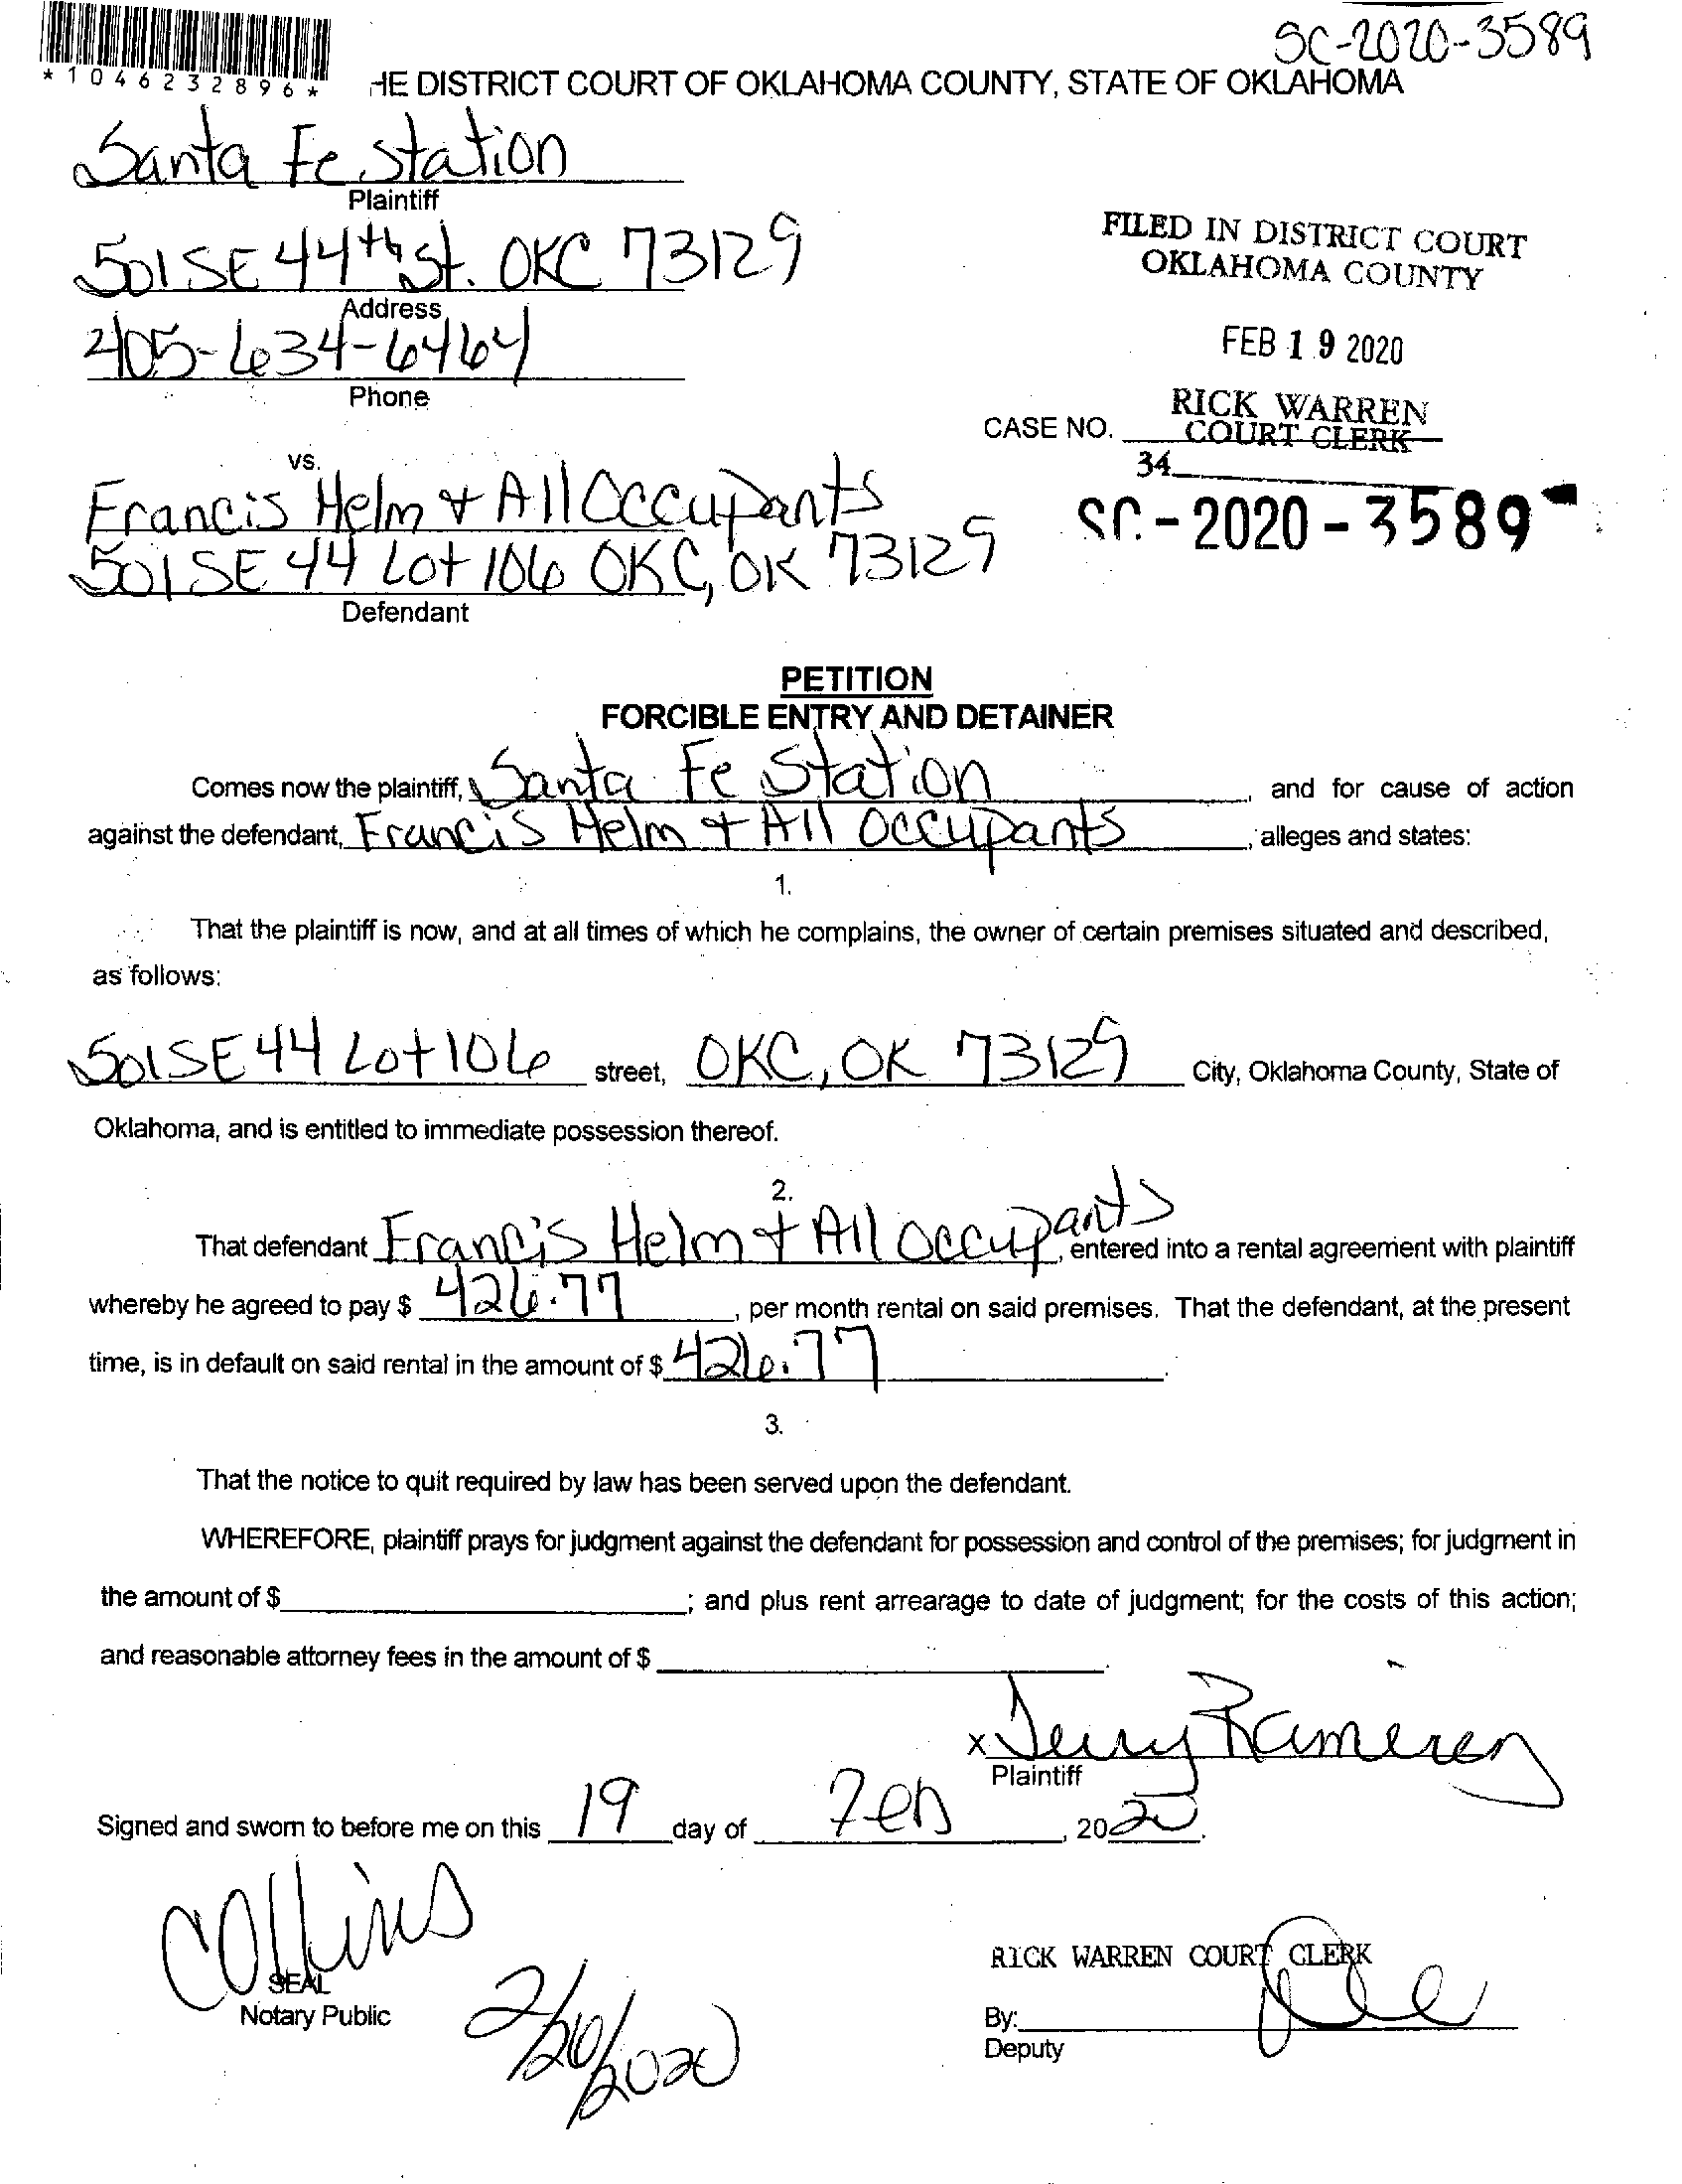 SC-2020-3589
*1046232896*
HE DISTRICT COURT OF OKLAHOMA COUNTY, STATE OF OKLAHOMA
Santa Fe Station
Plaintiff
501 SE 44th St. OKC 73129
Address
405-634-6464
Phone
FILED IN DISTRICT COURT
OKLAHOMA COUNTY
FEB 19 2020
RICK WARREN
COURT CLERK
CASE NO.
34
SC-2020-3589
vs.
Francis Helm + All Occupants
501 SE 44 Lot 106 OKC, OK 73129
Defendant
PETITION
FORCIBLE ENTRY AND DETAINER
Comes now the plaintiff, Santa Fe Station, and for cause of action
against the defendant, Francis Helm + All Occupants, alleges and states:
1.
That the plaintiff is now, and at all times of which he complains, the owner of certain premises situated and described,
as follows:
501 SE 44 Lot 106 street, OKC, OK 73129 City, Oklahoma County, State of
Oklahoma, and is entitled to immediate possession thereof.
2.
That defendant Francis Helm + All occupants, entered into a rental agreement with plaintiff
whereby he agreed to pay $ 426.77, per month rental on said premises. That the defendant, at the present
time, is in default on said rental in the amount of $ 426.77.
3.
That the notice to quit required by law has been served upon the defendant.
WHEREFORE, plaintiff prays for judgment against the defendant for possession and control of the premises; for judgment in
the amount of $ ; and plus rent arrearage to date of judgment; for the costs of this action;
and reasonable attorney fees in the amount of $ .
x Jerry Ramirez
Plaintiff
Signed and sworn to before me on this 19 day of Feb, 2020.
Collins
SEAL
Notary Public
2/20/2020
RICK WARREN COURT CLERK
By:
Deputy